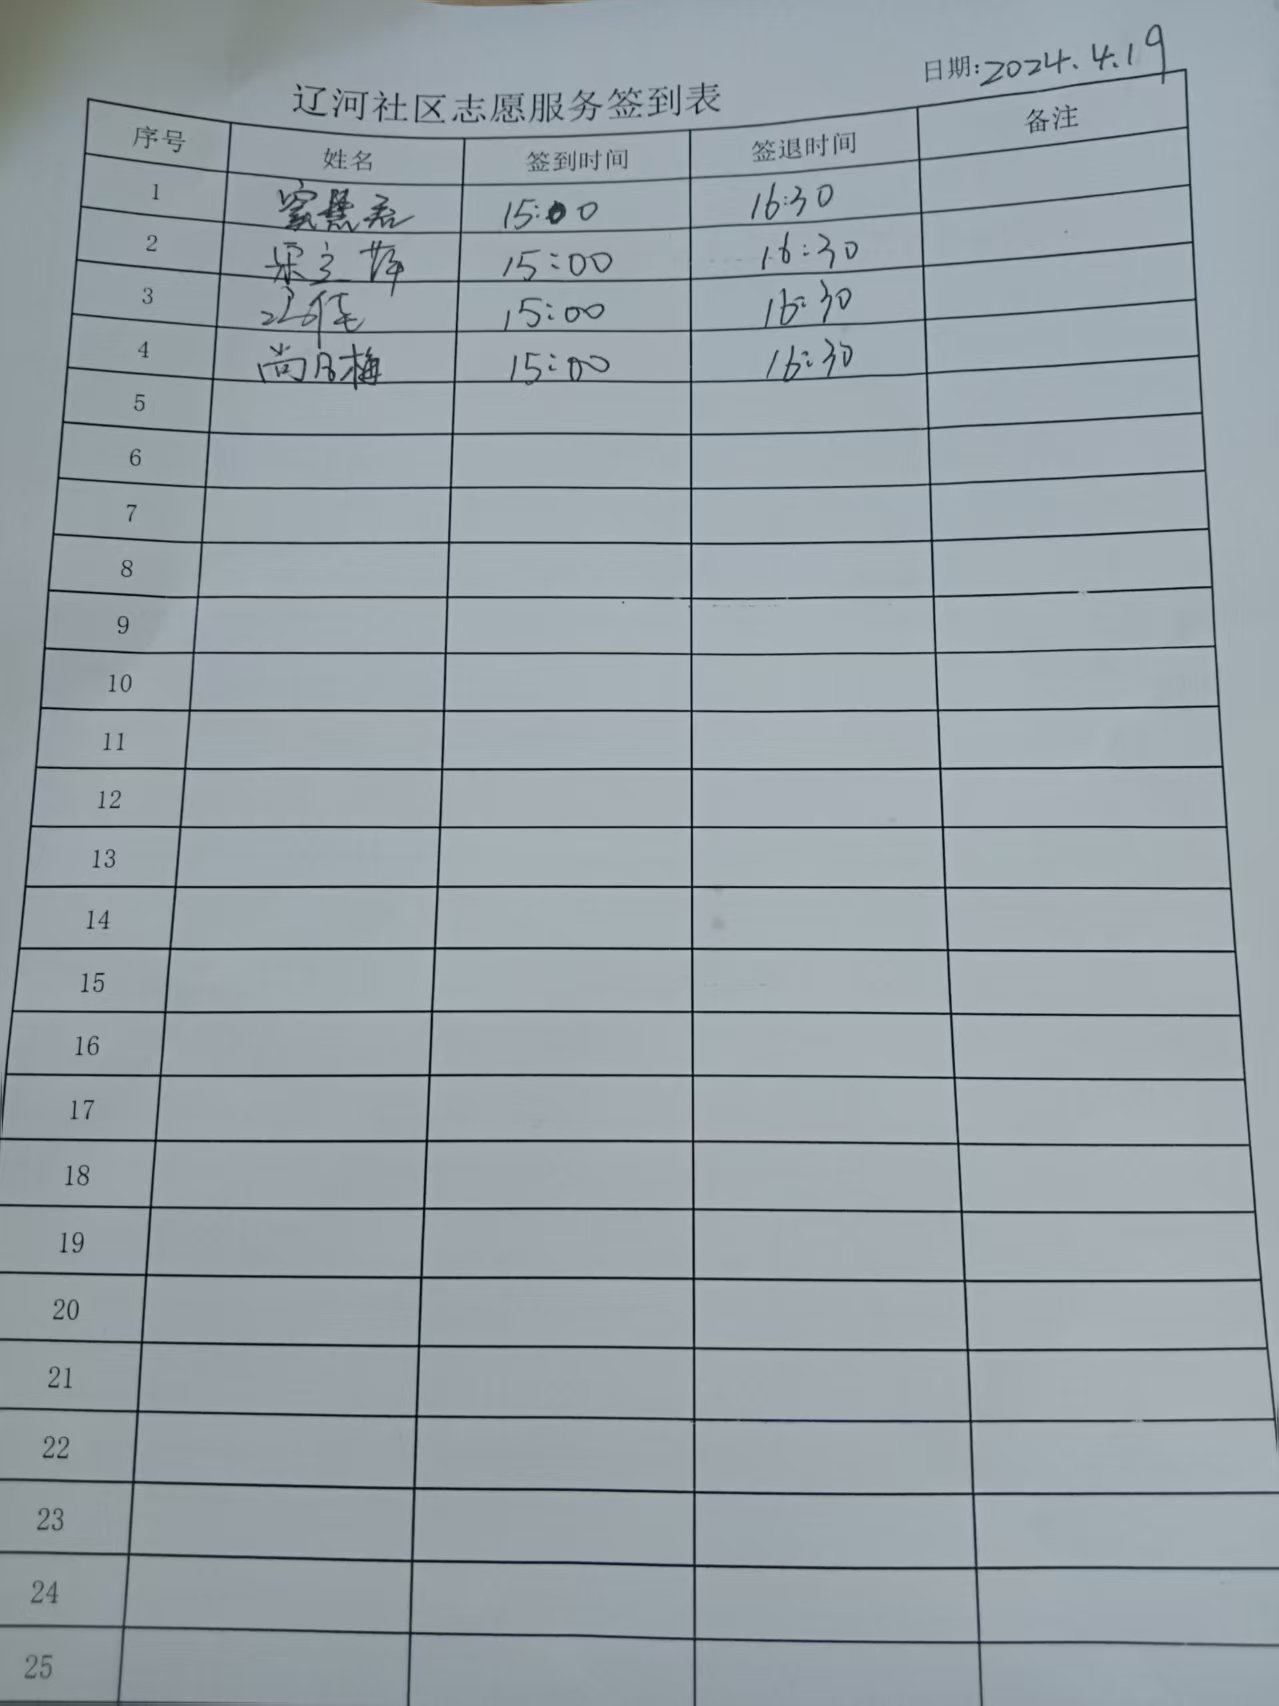 日期:2024.4.19
辽河社区志愿服务签到表
序号 姓名 签到时间 签退时间 备注
1 15:00 16:30
2 15:00 16:30
3 15:00 16:30
4 尚月梅 15:00 16:30
5
6
7
8
9
10
11
12
13
14
15
16
17
18
19
20
21
22
23
24
25